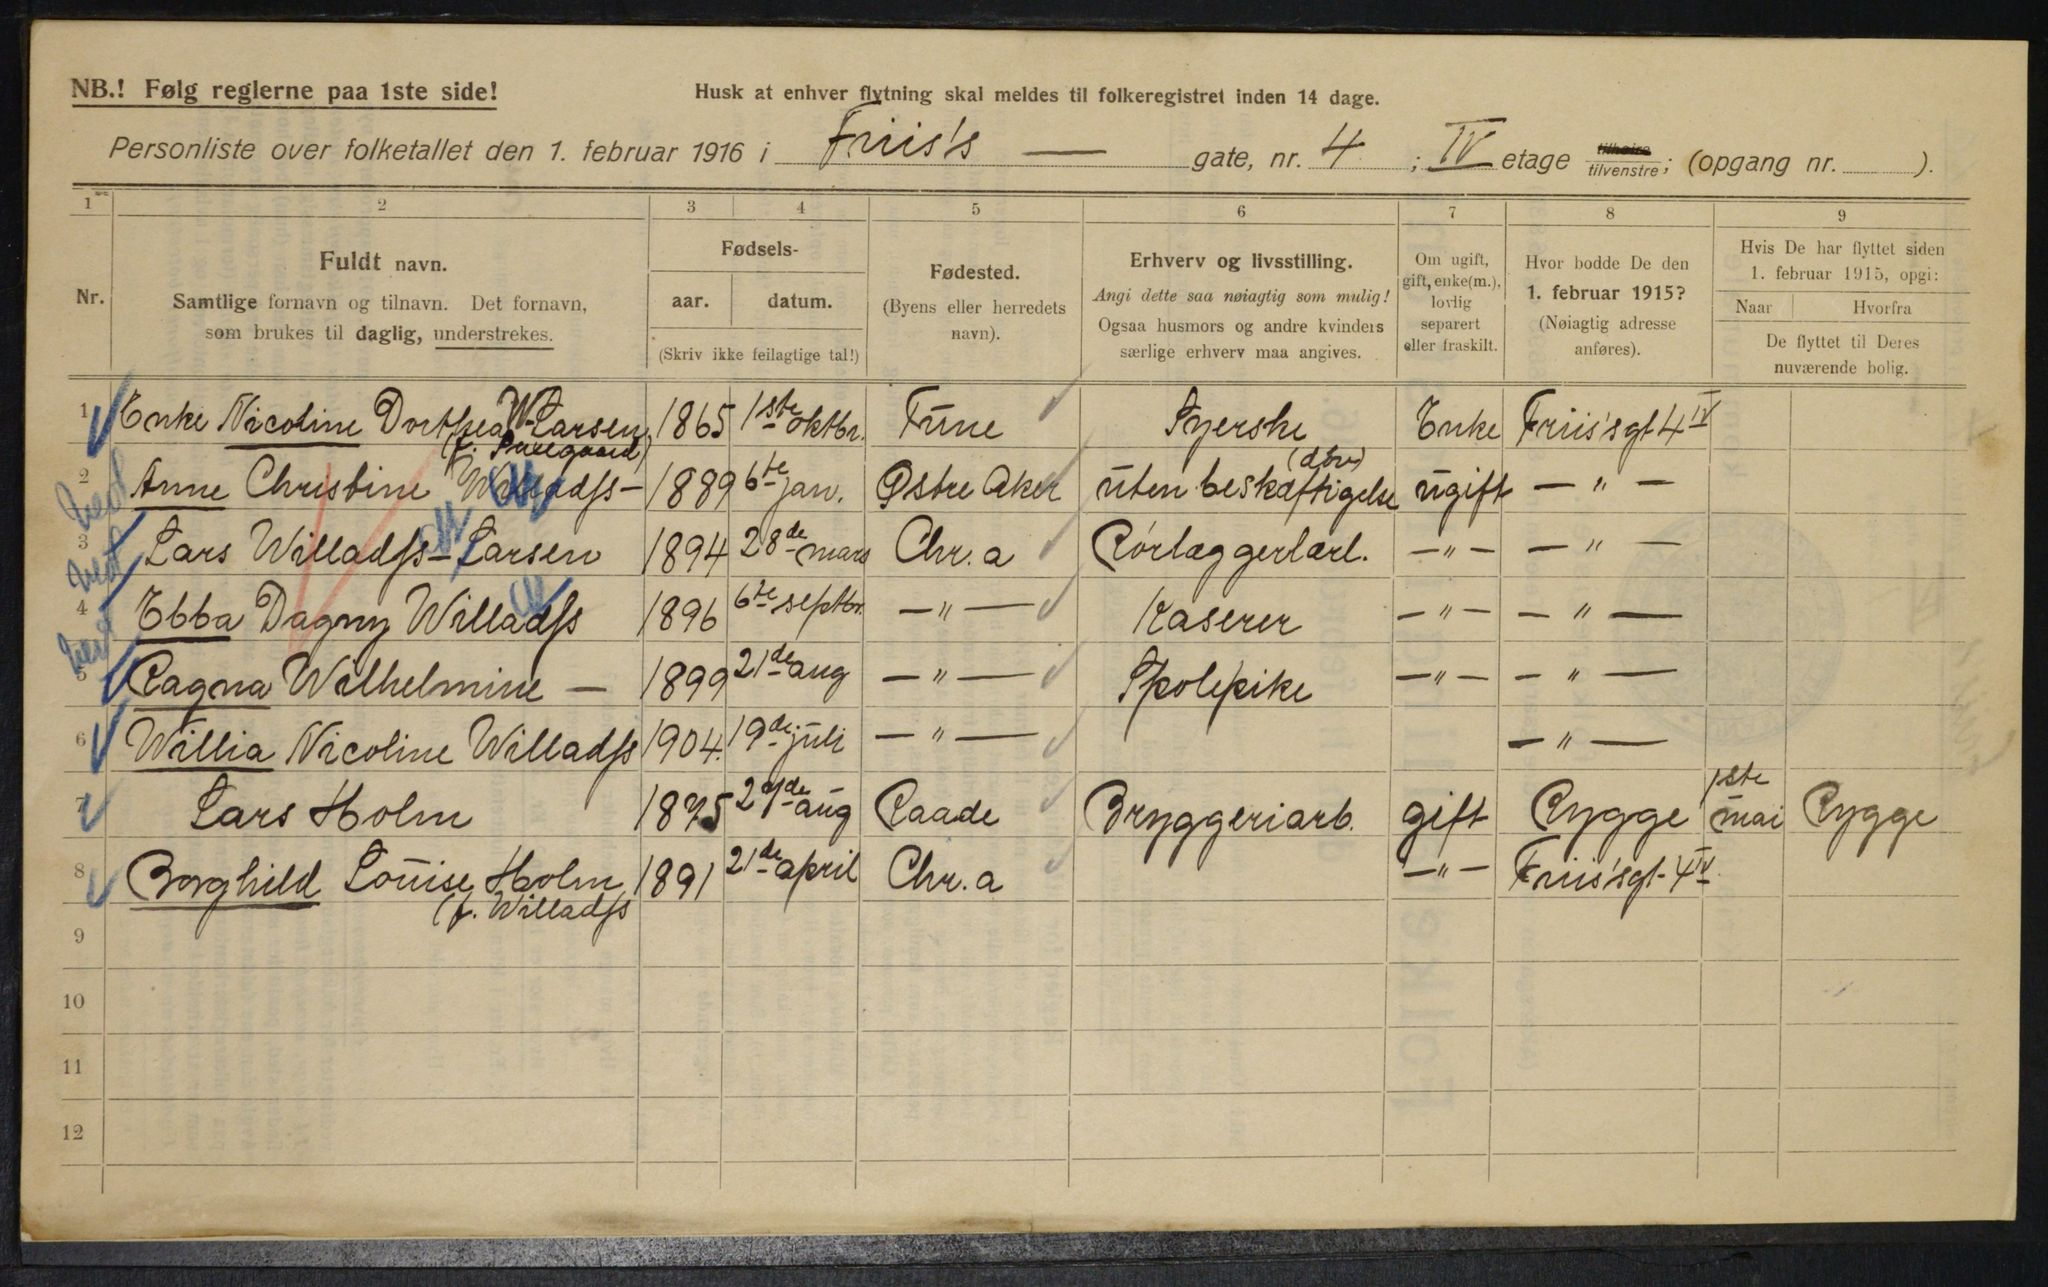 NB.! Følg reglerne paa 1ste side!
Husk at enhver flytning skal meldes til folkeregistret inden 14 dage.
Personliste over folketallet den 1. februar 1916 i Friis's — gate, nr. 4 ; IV etage tilhøire tilvenstre; (opgang nr. ).
1 2 3 4 5 6 7 8 9
Nr.
Fuldt navn.
Samtlige fornavn og tilnavn. Det fornavn,
som brukes til daglig, understrekes.
Fødsels-
aar. datum.
(Skriv ikke feilagtige tal!)
Fødested.
(Byens eller herredets
navn).
Erhverv og livsstilling.
Angi dette saa nøiagtig som mulig!
Ogsaa husmors og andre kvinders
særlige erhverv maa angives.
Om ugift,
gift, enke(m.),
lovlig
separert
eller fraskilt.
Hvor bodde De den
1. februar 1915?
(Nøiagtig adresse
anføres).
Hvis De har flyttet siden
1. februar 1915, opgi:
Naar Hvorfra
De flyttet til Deres
nuværende bolig.
1 Enke Nicoline Dorthea W-Larsen 1865 1ste oktbr. Tune Syerske Enke Friis'sgt 4 IV
2 Anne Christine Willadss— 1889 6te jan. Østre Aker uten beskæftigelse (døv) ugift — " —
3 Lars Willadss—Larsen 1894 28de mars Chr.a Rørlæggerlærl. — " — — " —
4 Ebba Dagny Willadss 1896 6te septbr. — " — Kaserer — " — — " —
5 Ragna Wilhelmine — 1899 21de aug — " — Spolepike — " — — " —
6 Willia Nicoline Willadss 1904. 19de juli — " — — " —
7 Lars Holm 1875 21de aug Raade Bryggeriarb. gift Rygge 1ste mai Rygge
8 Borghild Louise Holm 1891 21de april Chr.a — " — Friis'sgt 4 IV
(f. Willadss
9
10
11
12